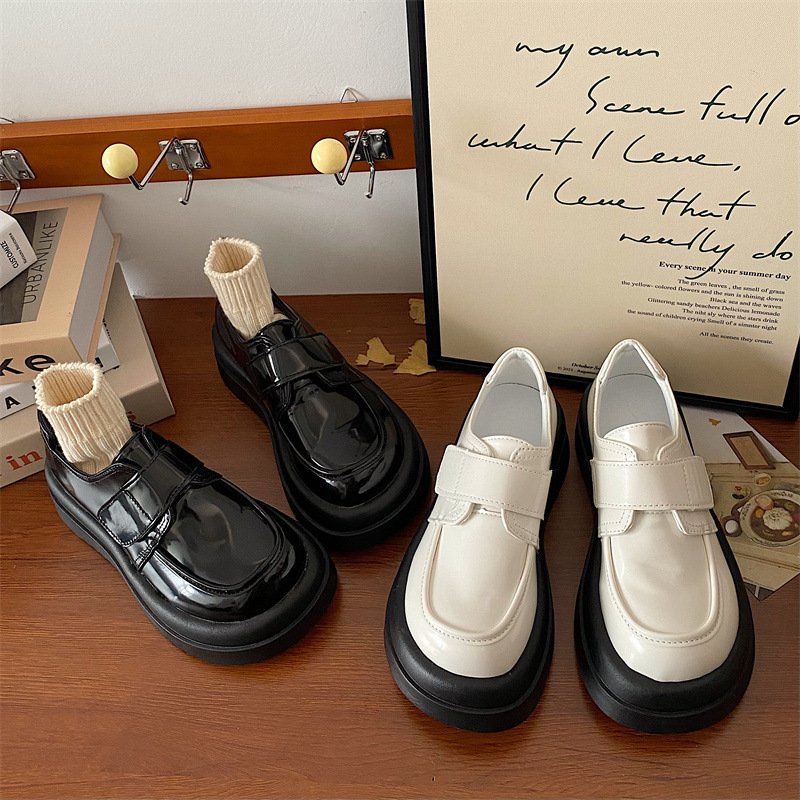 my own
Scene full o
what I love,
I love that
really do
Every scene in your summer day
The green leaves , the smell of grass
the yellow- colored flowers and the sun is shining down
Black sea and the waves
Glittering sandy beachers Delicious lemonade
The niht sly where the stars drink
the sound of children crying Smell of a simnter night
All the scenes they create.
October
© 2021
URBANLIKE
CUSTOMIZE
ke
in